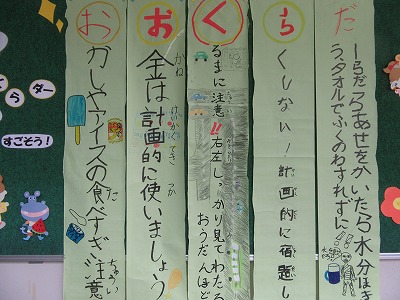 だ
ーらだらあせをかいたら水分ほき
う、タオルでふくのわすれずに
ら
くしない！計画的に宿題し
く
るまに注意!!右左しっかり見てわたる
おうだんほど
お
金は計画的に使いましょう
かね けいかくてき つか
お
かしやアイスの食べすぎ注意
た ちゅうい
ター
すごそう！